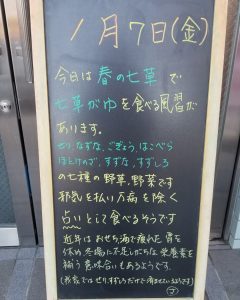 1月7日(金)
今日は 春の七草 で
七草がゆを食べる風習が
あります。
せり、なずな、ごぎょう、はこべら
ほとけのざ、すずな、すずしろ
の七種の野草、野菜です
邪気を払い万病を除く
占いとして食べるそうです
近年はおせち酒で疲れた胃を
休め 冬場に不足しがちな栄養素を
補う意味合いもあるようです。